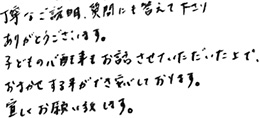 丁寧なご説明、質問にも答えて下さり
ありがとうございます。
子どもの心配事をお話させていただいた上で、
おまかせする事ができ安心しております。
宜しくお願い致します。